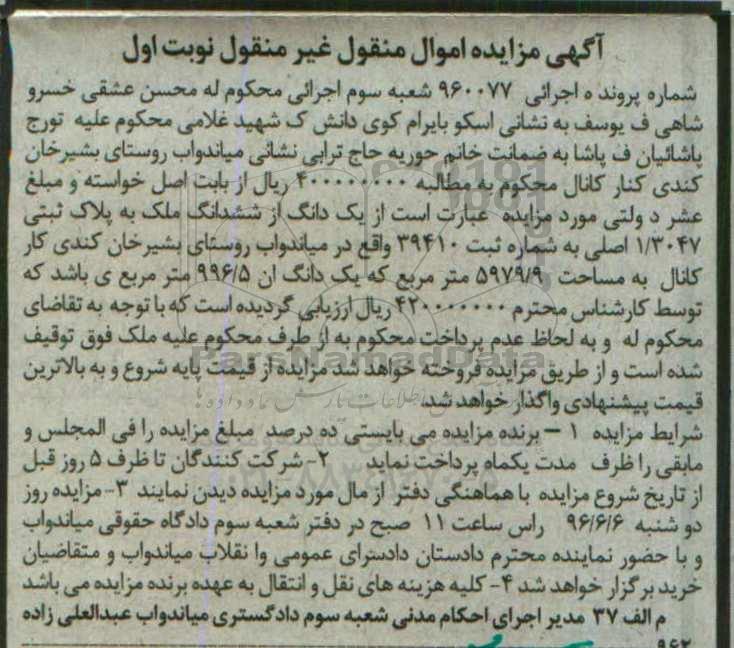 آگهی مزایده اموال منقول غیر منقول نوبت اول
شماره پرونده اجرائی ۹۶۰۰۷۷ شعبه سوم اجرائی محکوم له محسن عشقی خسرو
شاهی ف یوسف به نشانی اسکو بایرام کوی دانش ک شهید غلامی محکوم علیه تورج
پاشائیان ف پاشا به ضمانت خانم حوریه حاج ترابی نشانی میاندواب روستای بشیرخان
کندی کنار کانال محکوم به مطالبه ۴۰۰۰۰۰۰۰۰ ریال از بابت اصل خواسته و مبلغ
عشر د ولتی مورد مزایده عبارت است از یک دانگ از ششدانگ ملک به پلاک ثبتی
۱/۳۰۴۷ اصلی به شماره ثبت ۳۹۴۱۰ واقع در میاندواب روستای بشیرخان کندی کار
کانال به مساحت ۵۹۷۹/۹ متر مربع که یک دانگ ان ۹۹۶/۵ متر مربع ی باشد که
توسط کارشناس محترم ۴۲۰۰۰۰۰۰۰ ریال ارزیابی گردیده است که با توجه به تقاضای
محکوم له و به لحاظ عدم پرداخت محکوم به از طرف محکوم علیه ملک فوق توقیف
شده است و از طریق مزایده فروخته خواهد شد مزایده از قیمت پایه شروع و به بالاترین
قیمت پیشنهادی واگذار خواهد شد.
شرایط مزایده ۱ – برنده مزایده می بایستی ده درصد مبلغ مزایده را فی المجلس و
مابقی را ظرف مدت یکماه پرداخت نماید ۲- شرکت کنندگان تا ظرف ۵ روز قبل
از تاریخ شروع مزایده با هماهنگی دفتر از مال مورد مزایده دیدن نمایند ۳- مزایده روز
دو شنبه ۹۶/۶/۶ راس ساعت ۱۱ صبح در دفتر شعبه سوم دادگاه حقوقی میاندواب
و با حضور نماینده محترم دادستان دادسرای عمومی وا نقلاب میاندواب و متقاضیان
خرید برگزار خواهد شد ۴- کلیه هزینه های نقل و انتقال به عهده برنده مزایده می باشد
م الف ۳۷ مدیر اجرای احکام مدنی شعبه سوم دادگستری میاندواب عبدالعلی زاده
۹۶۲
ParsNamadData